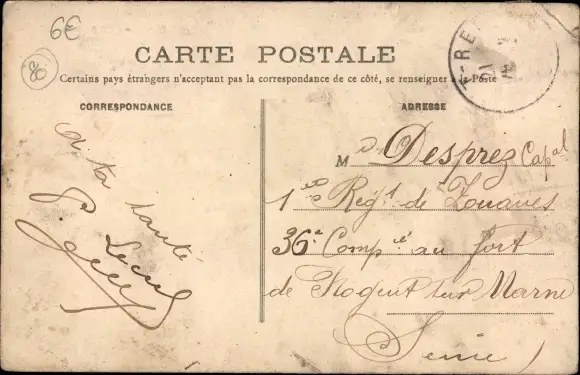 6€
80
CARTE POSTALE
Certains pays étrangers n'acceptant pas la correspondance de ce côté, se renseigner à la Poste
CORRESPONDANCE
ADRESSE
a ta santé
M Desprez Cap.al
1er Reg.t de Zouaves
36e Comp.ie au fort
de Nogent sur Marne
Seine